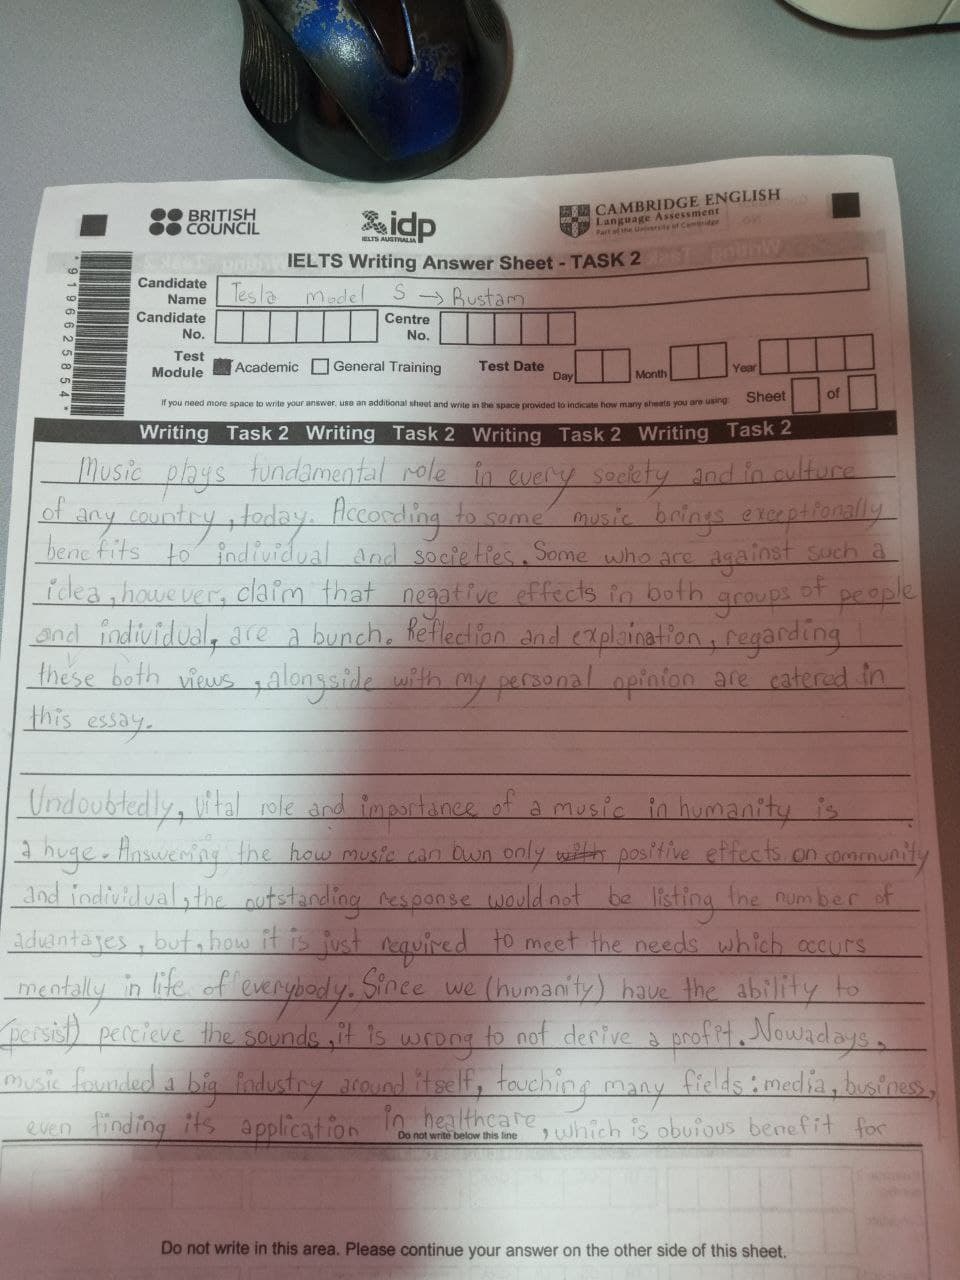 BRITISH COUNCIL
idp
IELTS AUSTRALIA
CAMBRIDGE ENGLISH
Language Assessment
Part of the University of Cambridge
IELTS Writing Answer Sheet - TASK 2
Candidate Name Tesla model S → Rustam
Candidate No. Centre No.
Test Module Academic General Training Test Date Day Month Year
If you need more space to write your answer, use an additional sheet and write in the space provided to indicate how many sheets you are using: Sheet of
*9196625854*
Writing Task 2 Writing Task 2 Writing Task 2 Writing Task 2
Music plays fundamental role in every society and in culture
of any country, today. According to some music brings exceptionally
benefits to individual and societies. Some who are against such a
idea, however, claim that negative effects in both groups of people
and individual, are a bunch. Reflection and explaination, regarding
these both views, alongside with my personal opinion are catered in
this essay.
Undoubtedly, vital role and importance of a music in humanity is
a huge. Answering the how music can own only with positive effects on community
and individual, the outstanding response would not be listing the number of
advantages, but, how it is just required to meet the needs which occurs
mentally in life of everybody. Since we (humanity) have the ability to
(persist) percieve the sounds, it is wrong to not derive a profit. Nowadays,
music founded a big industry around itself, touching many fields: media, business,
even finding its application in healthcare, which is obvious benefit for
Do not write below this line
Do not write in this area. Please continue your answer on the other side of this sheet.